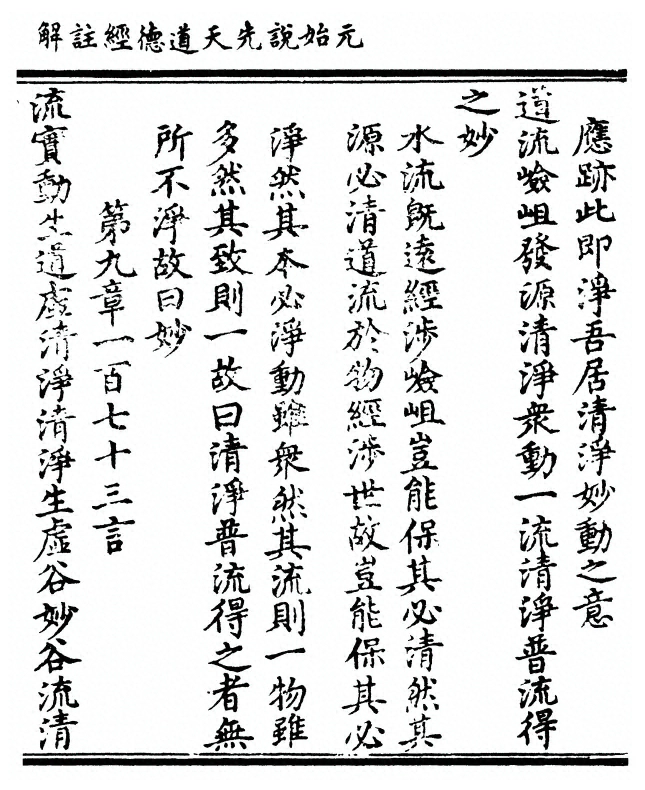 元始說先天道德經註解
應跡此即淨吾居清淨妙動之意
道流嶮岨發源清淨衆動一流清淨普流得
之妙
水流旣遠經涉嶮岨豈能保其必清然其
源必清道流於物經涉世故豈能保其必
淨然其本必淨動雖衆然其流則一物雖
多然其致則一故曰清淨普流得之者無
所不淨故曰妙
第九章一百七十三言
流實動生道虛清淨清淨生虛谷妙谷流清